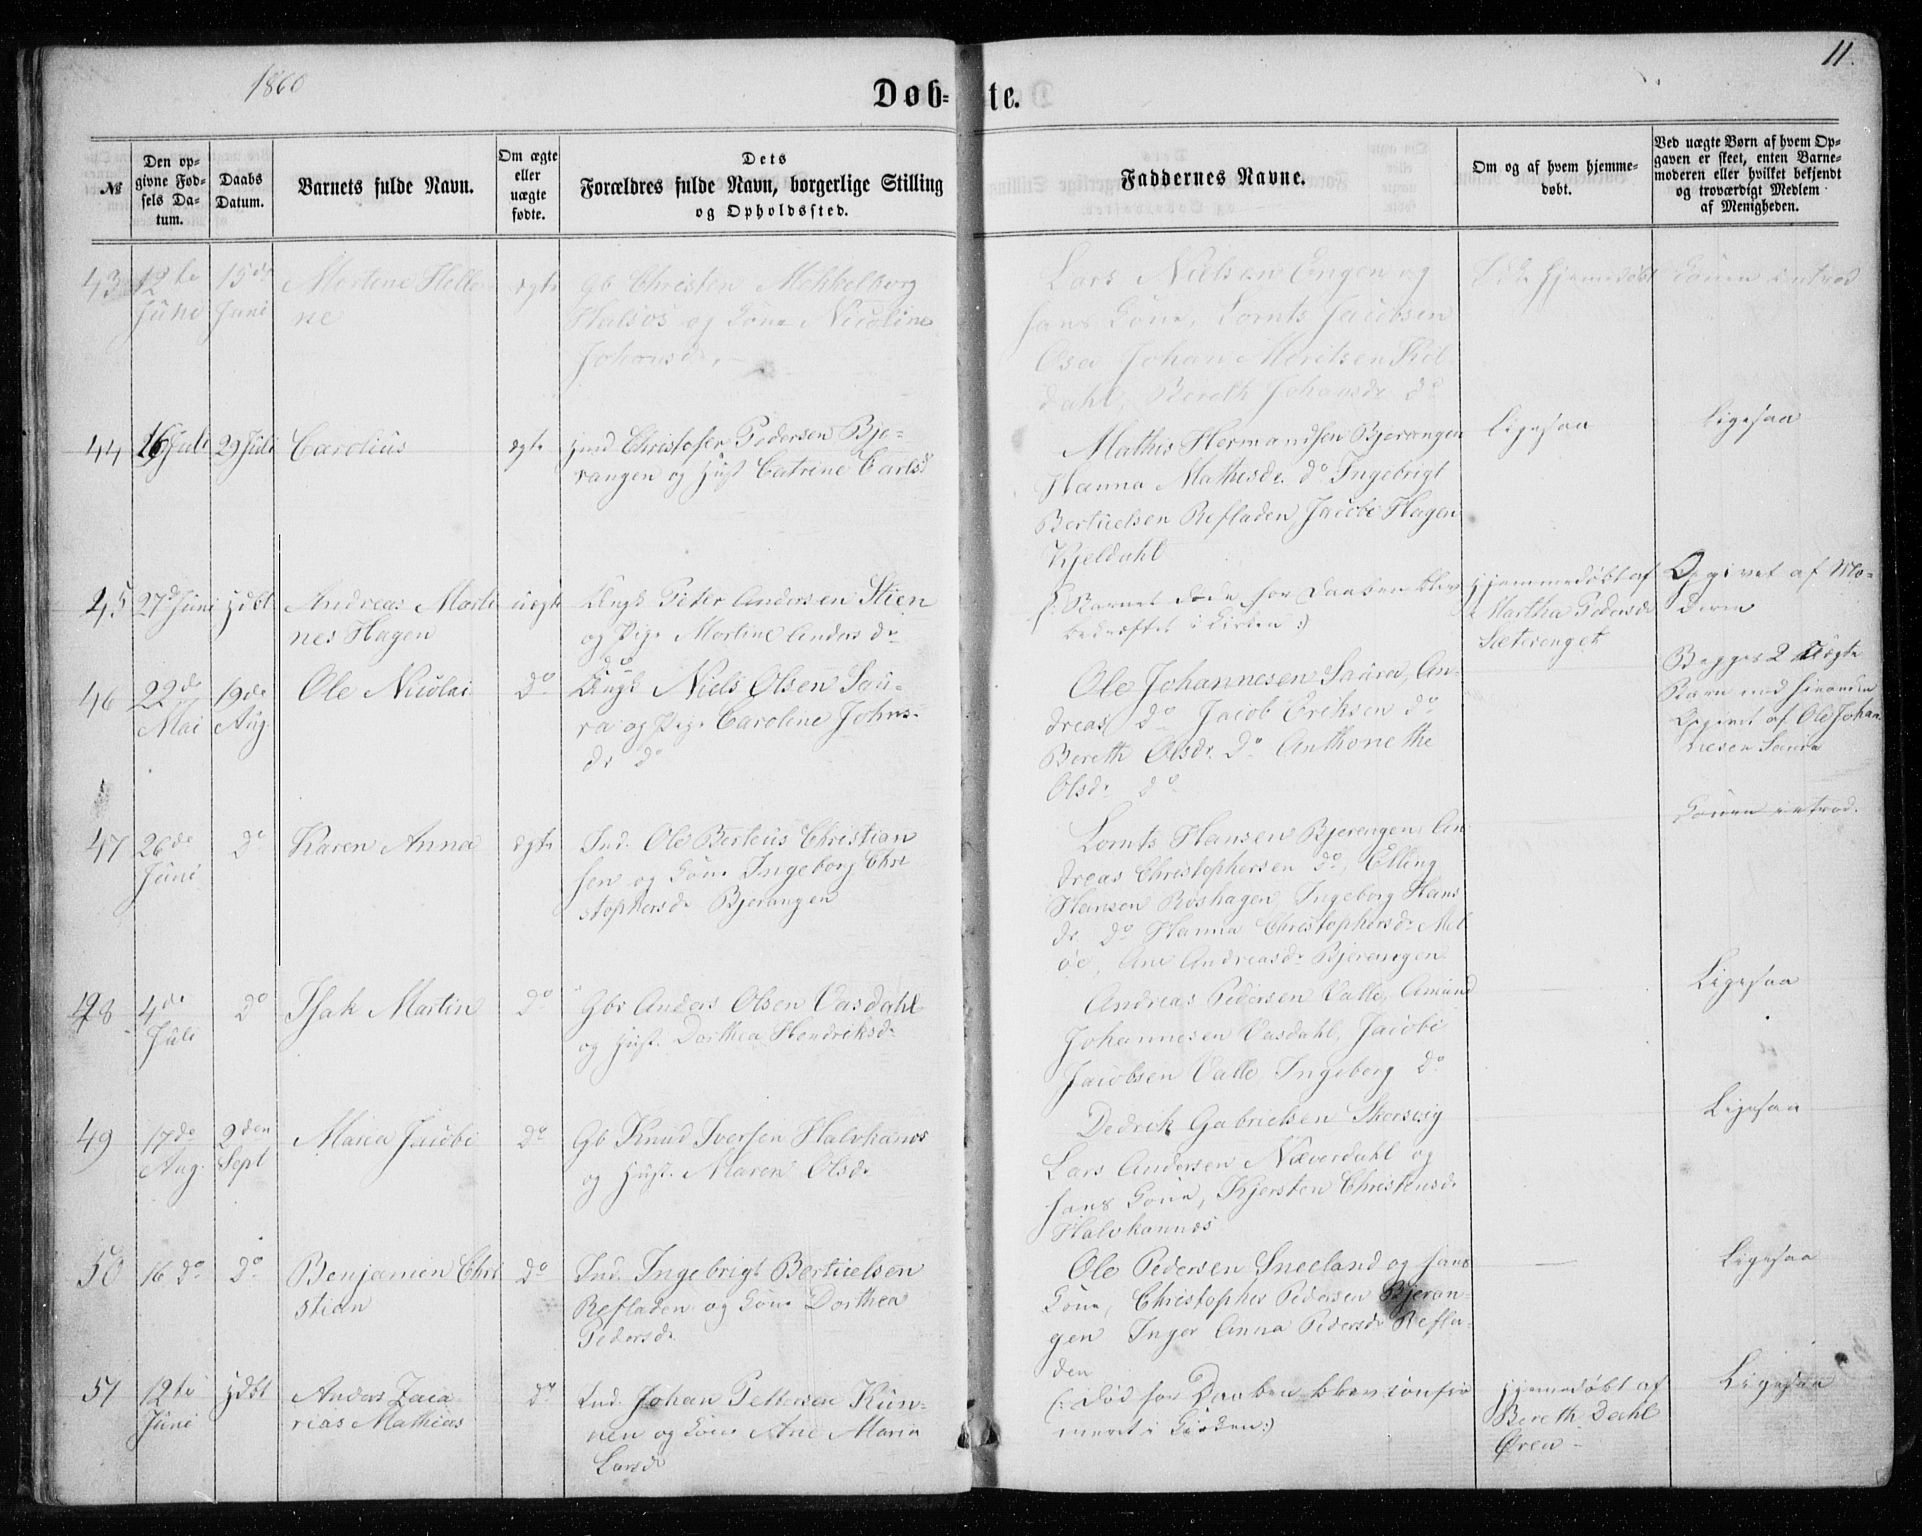 1860
Døb-
te.
11.
№
Den op-
givne Fød-
sels Da-
tum.
Daabs
Datum.
Barnets fulde Navn.
Om ægte
eller
uægte
fødte.
Dets
Forældres fulde Navn, borgerlige Stilling
og Opholdssted.
Faddernes Navne.
Om og af hvem hjemme-
døbt.
Ved uægte Børn af hvem Op-
gaven er skeet, enten Barne-
moderen eller hvilket bekjendt
og troværdigt Medlem
af Menigheden.
43 12te 15de Mortine Helle ægte Gb Christen Mekkelborg
Juni Juni ne Halsos og Kone Nicoline
Johansd.
Lars Nielsen Engen og
hans Kone, Lornts Jacobsen
Osa Johan Moritsen Kil
dahl, Bereth Johansdr do
Ikke hjemmedøbt
Konen introd
44 16 Juli 29 Juli Carolius ægte Hmd Christofer Pedersen Bje-
rangen og Hust Catrine Carlsd
Mathis Hermandsen Bjerangen
Hanna Mathisdr. do Ingebrigt
Bertuelsen Refladen, Jacobi Hagen
Kjeldahl
Ligesaa
Ligesaa
45 27d Juni hjdbt Andreas Marti uægte Ungk Peter Andersen Stien
nes Hagen og Pige Martine Andersdr
do
(: Barnet døde før Daaben blev
bekræftet i Kirken :)
Hjemmedøbt af
Martha Pedersdr
Sætevenget
Opgivet af Mo-
deren
46 22de 19de Ole Nicolai do Ungk Niels Olsen Sau-
Mai Aug ra og Pige Caroline Johns-
dr do
Ole Johannesen Saura, An-
dreas do Jacob Eriksen do
Bereth Olsdr. do Anthonethe
Olsdr do
Begges 2 Uægte
Barn med hinanden
Opgivet af Ole Johan
nesen Saura
47 26de do Karen Anna ægte Ind. Ole Berteus Christian
Juni sen og Kone Ingeborg Chri
stophersdr Bjerangen
Lornts Hansen Bjerangen, An
dreas Christophersen do, Elling
Hansen Roshagen, Ingeborg Hans
dr. do Hanna Christophersdr Mel
øe, Ane Andreasdr Bjerangen
Konen introd.
48 4de do Isak Martin do Gbr Anders Olsen Vasdahl
Juli og Hust. Dorthea Hendriksdr
Andreas Pedersen Valle, Amund
Johannesen Vasdahl, Jacobi
Jacobsen Valle, Ingeborg do
Ligesaa
49 17de 2den Maria Jacobi do Gb Knud Iversen Halvkanos
Aug. Sept og Hust. Maren Olsdr
Dedrik Gabrielsen Skorsvig
Lars Andersen Næverdahl og
hans Kone, Kjersten Christensdr
Halvkannos
Ligesaa
50 16 do do Benjamin Chri do Ind. Ingebrigt Bertuelsen
stian Refladen og Kone Dorthea
Pedersdr
Ole Pedersen Sneeland og hans
Kone, Christopher Pedersen Bjeran-
gen Inger Anna Pedersdr Refla-
den
Ligesaa
51 12te hjdbt Anders Zaca do Ind. Johan Pettersen Kun-
Juni rias Mathias nen og Kone Ane Maria
Larsdr
(: Død før Daaben blev confir
meret i Kirken :)
Hjemmedøbt af
Bereth Dahl
Øren
Ligesaa